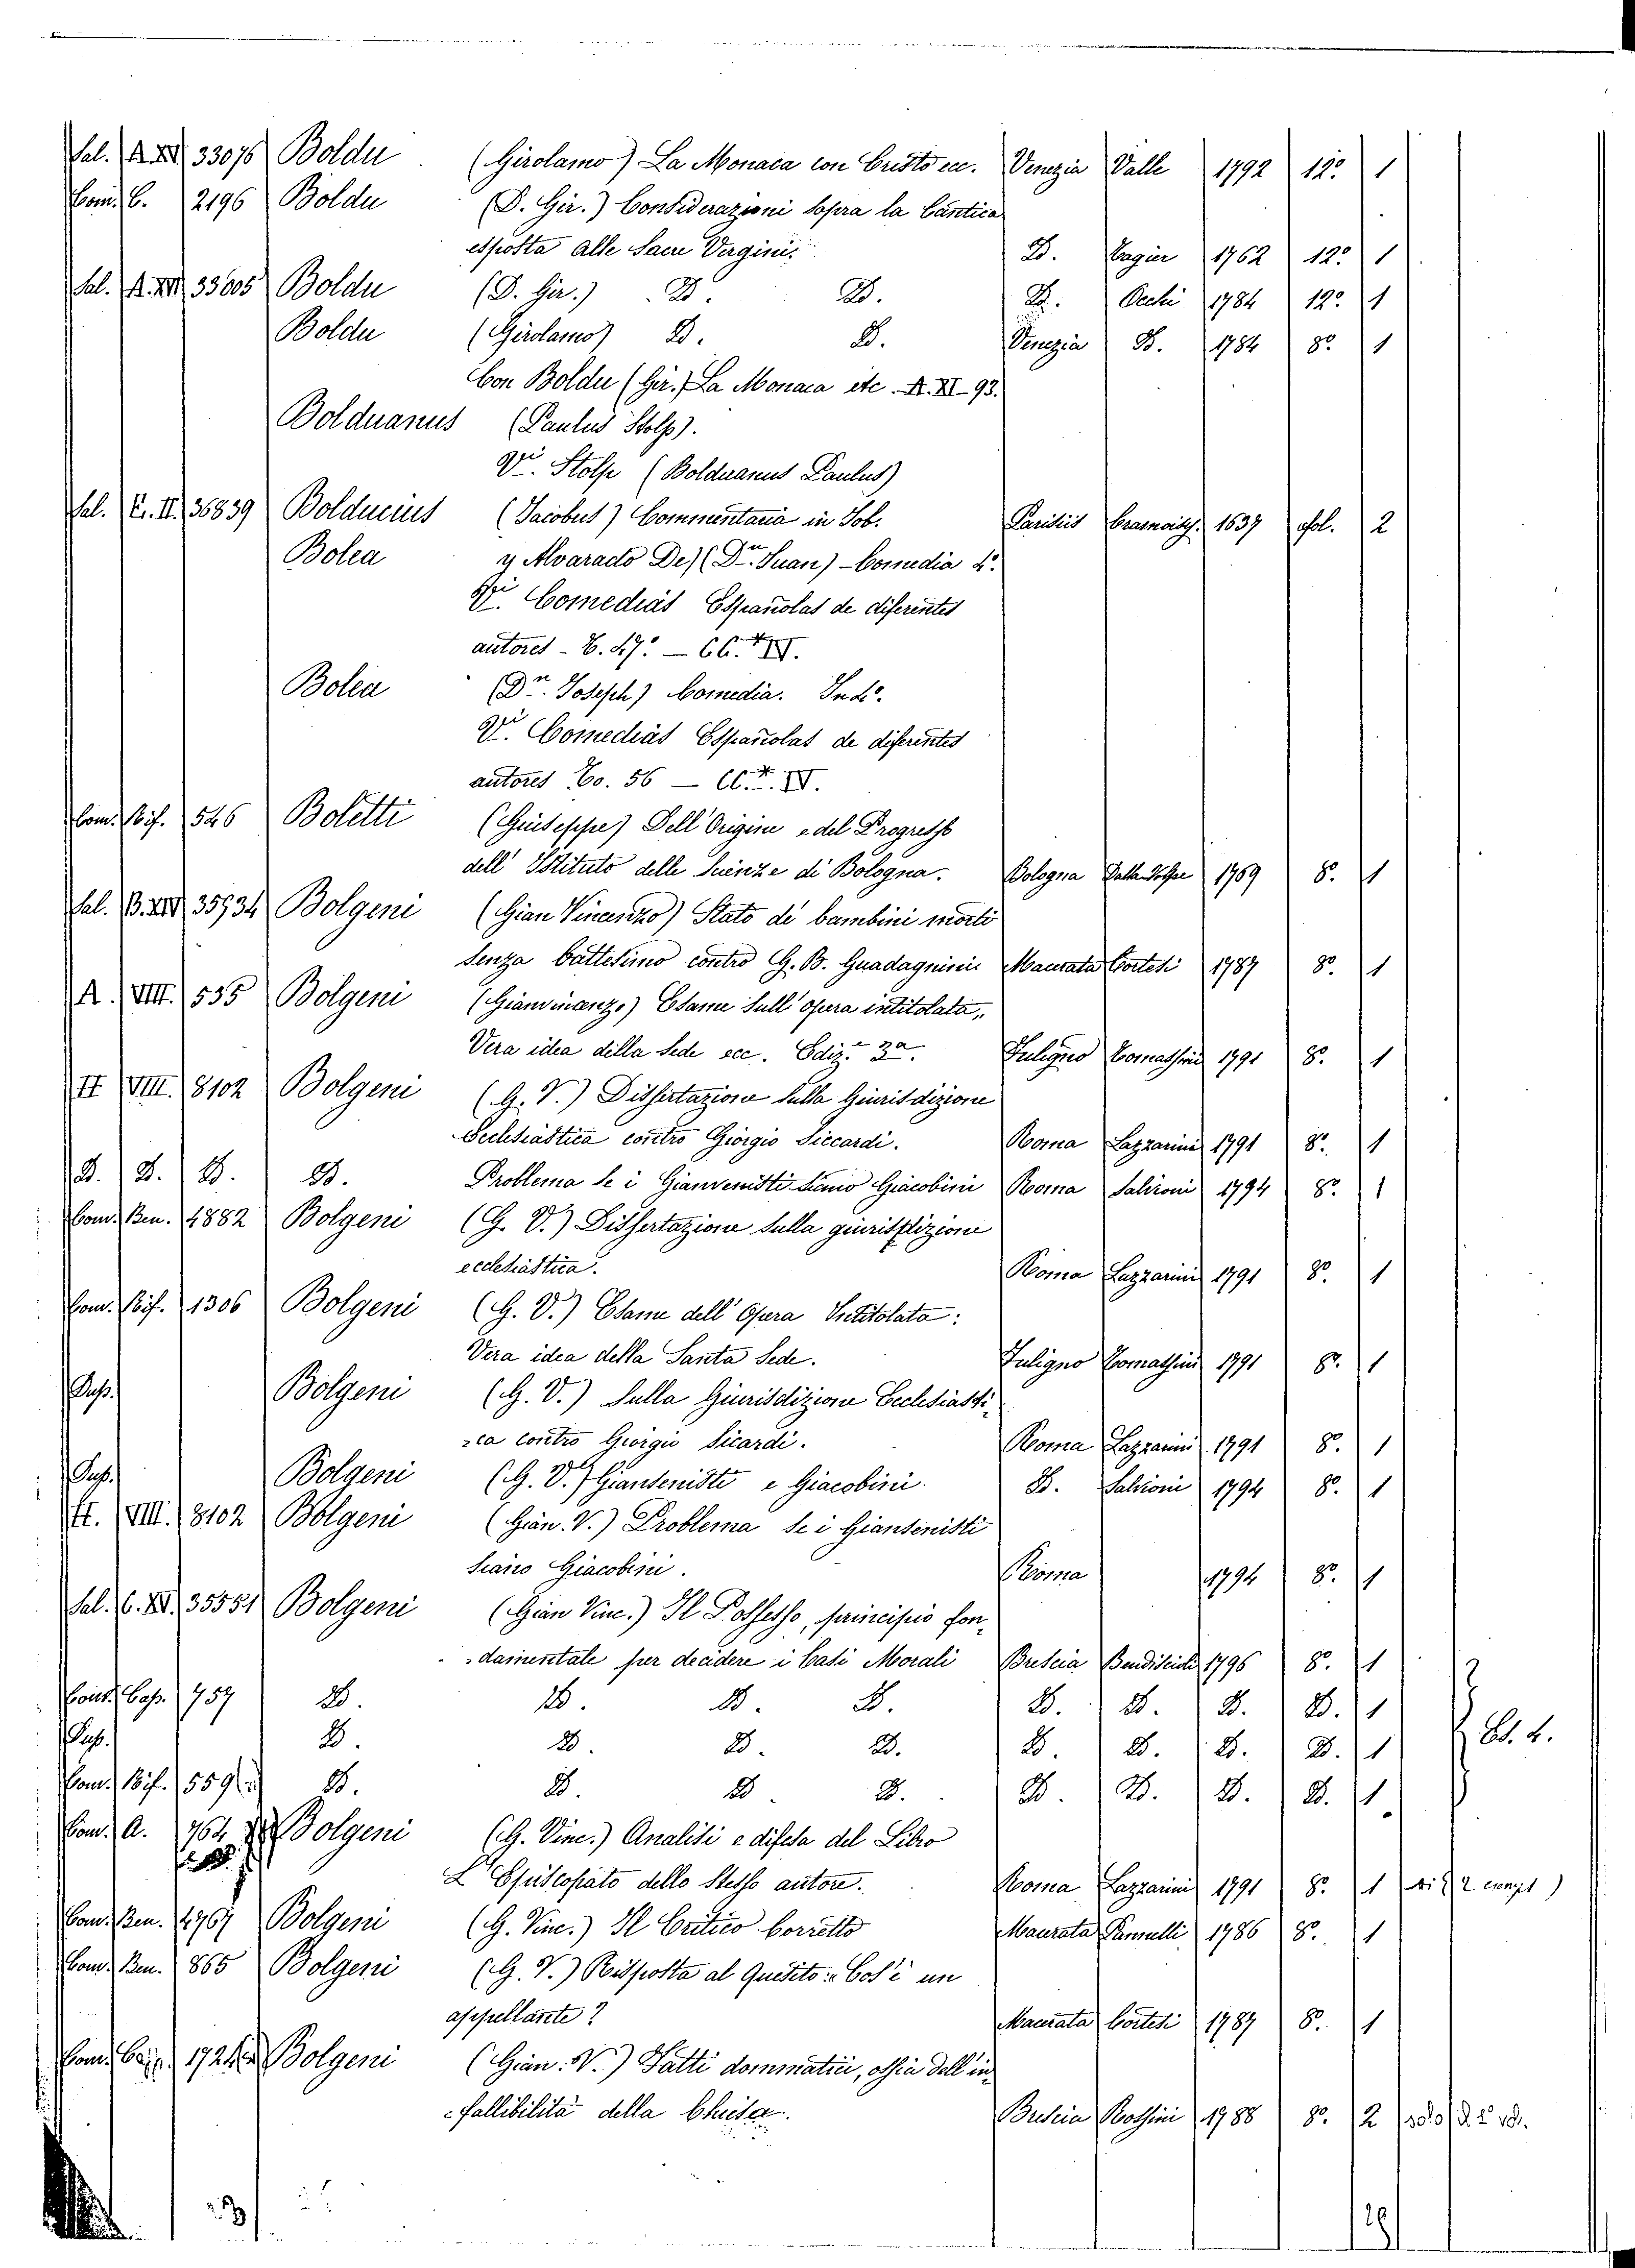 Sal. A. XI 33076 Boldu (Girolamo) La Monaca con Cristo ec. Venezia Valle 1792 12º 1
Com. C. 2196 Boldu (D. Gir.) Considerazioni sopra la Cantica
esposta alle Sacre Vergini. D. Bagier 1762 12º 1
Sal. A. XII 33605 Boldu (D. Gir.) D. D. D. Occhi 1784 12º 1
Boldu (Girolamo) D. D. Venezia D. 1784 8º 1
Con Boldu (Gir.) La Monaca etc. A. XI-93.
Bolduanus (Paulus Stolp).
Vi. Stolp (Bolduanus Paulus)
Sal. E. II. 36839 Bolducius (Jacobus) Commentaria in Job. Parisiis Cramoisy. 1637 fol. 2
Bolea y Alvarado De) (Dn. Juan) - Comedia
Vi. Comedias Españolas de diferentes
autores - C. 47. - CC. IV.
Bolea (Dn. Joseph) Comedia.
Vi. Comedias Españolas de diferentes
autores Co. 56 - CC. IV.
Com. Bif. 546 Boletti (Giuseppe) Dell'Origine e del Progresso
dell'Istituto delle Scienze di Bologna. Bologna Dalla Volpe 1769 8. 1
Sal. B. XIII 35934 Bolgeni (Gian Vincenzo) Stato di bambini morti
senza battesimo contro G. B. Guadagnini Macerata Cortesi 1787 8º 1
A. VIII. 535 Bolgeni (Gianvincenzo) Esame sull'opera intitolata,
Vera idea della Sede ecc. Ediz. 3a. Fuligno Tomassini 1791 8º 1
II VIII. 8102 Bolgeni (G. V.) Dissertazione sulla Giurisdizione
Ecclesiastica contro Giorgio Siccardi. Roma Lazzarini 1791 8º. 1
D. D. D. D. Problema se i Giansenisti siano Giacobini Roma Salvioni 1794 8º 1
Com. Ben. 4882 Bolgeni (G. V.) Dissertazione sulla giurisdizione
ecclesiastica. Roma Lazzarini 1791 8º. 1
Com. Bif. 1306 Bolgeni (G. V.) Esame dell'Opera Intitolata:
Vera idea della Santa Sede. Fuligno Tomassini 1791 8º. 1
Dup. Bolgeni (G. V.) Sulla Giurisdizione Ecclesiasti-
-ca contro Giorgio Sicardi. Roma Lazzarini 1791 8º. 1
Dup. Bolgeni (G. V.) Giansenisti e Giacobini. D. Salvioni 1794 8º. 1
II. VIII. 8102 Bolgeni (Gian. V.) Problema se i Giansenisti
siano Giacobini. Roma 1794 8º. 1
Sal. C. XI. 35551 Bolgeni (Gian Vinc.) Il Possesso, principio fon-
-damentale per decidere i Casi Morali Brescia Bendiscioli 1796 8º. 1
Cont. Cap. 757 D. D. D. D. D. D. D. D. 1
Dup. D. D. D. D. D. D. D. D. 1
Com. Bif. 559 D. D. D. D. D. D. D. D. 1
Com. A. 764 Bolgeni (G. Vinc.) Analisi e difesa del Libro
L'Episcopato dello stesso autore. Roma Lazzarini 1791 8º. 1
Com. Ben. 4767 Bolgeni (G. Vinc.) Il Critico Corretto Macerata 1786 8º. 1
Com. Ben. 865 Bolgeni (G. V.) Risposta al Quesito: Cos'è un
appellante? Macerata Cortesi 1787 8º. 1
Com. 1724 Bolgeni (Gian. V.) Fatti dommatici, ossia dell'in-
-fallibilità della Chiesa. Brescia 1788 8º. 2